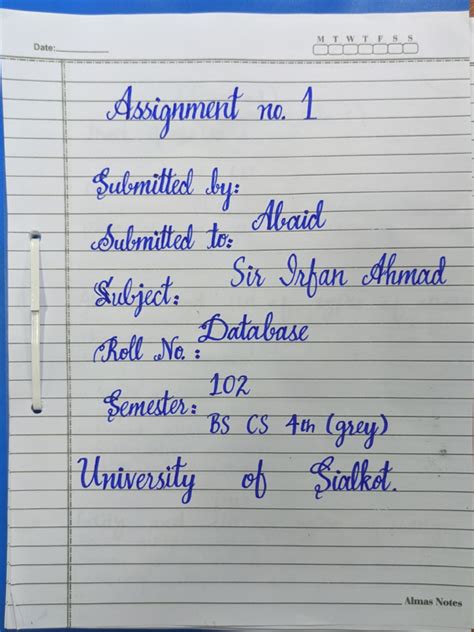 Date:
M T W T F S S
Assignment no. 1
Submitted by:
Abaid
Submitted to:
Sir Irfan Ahmad
Subject:
Database
Roll No. :
102
Semester:
BS CS 4th (grey)
University of Sialkot.
Almas Notes